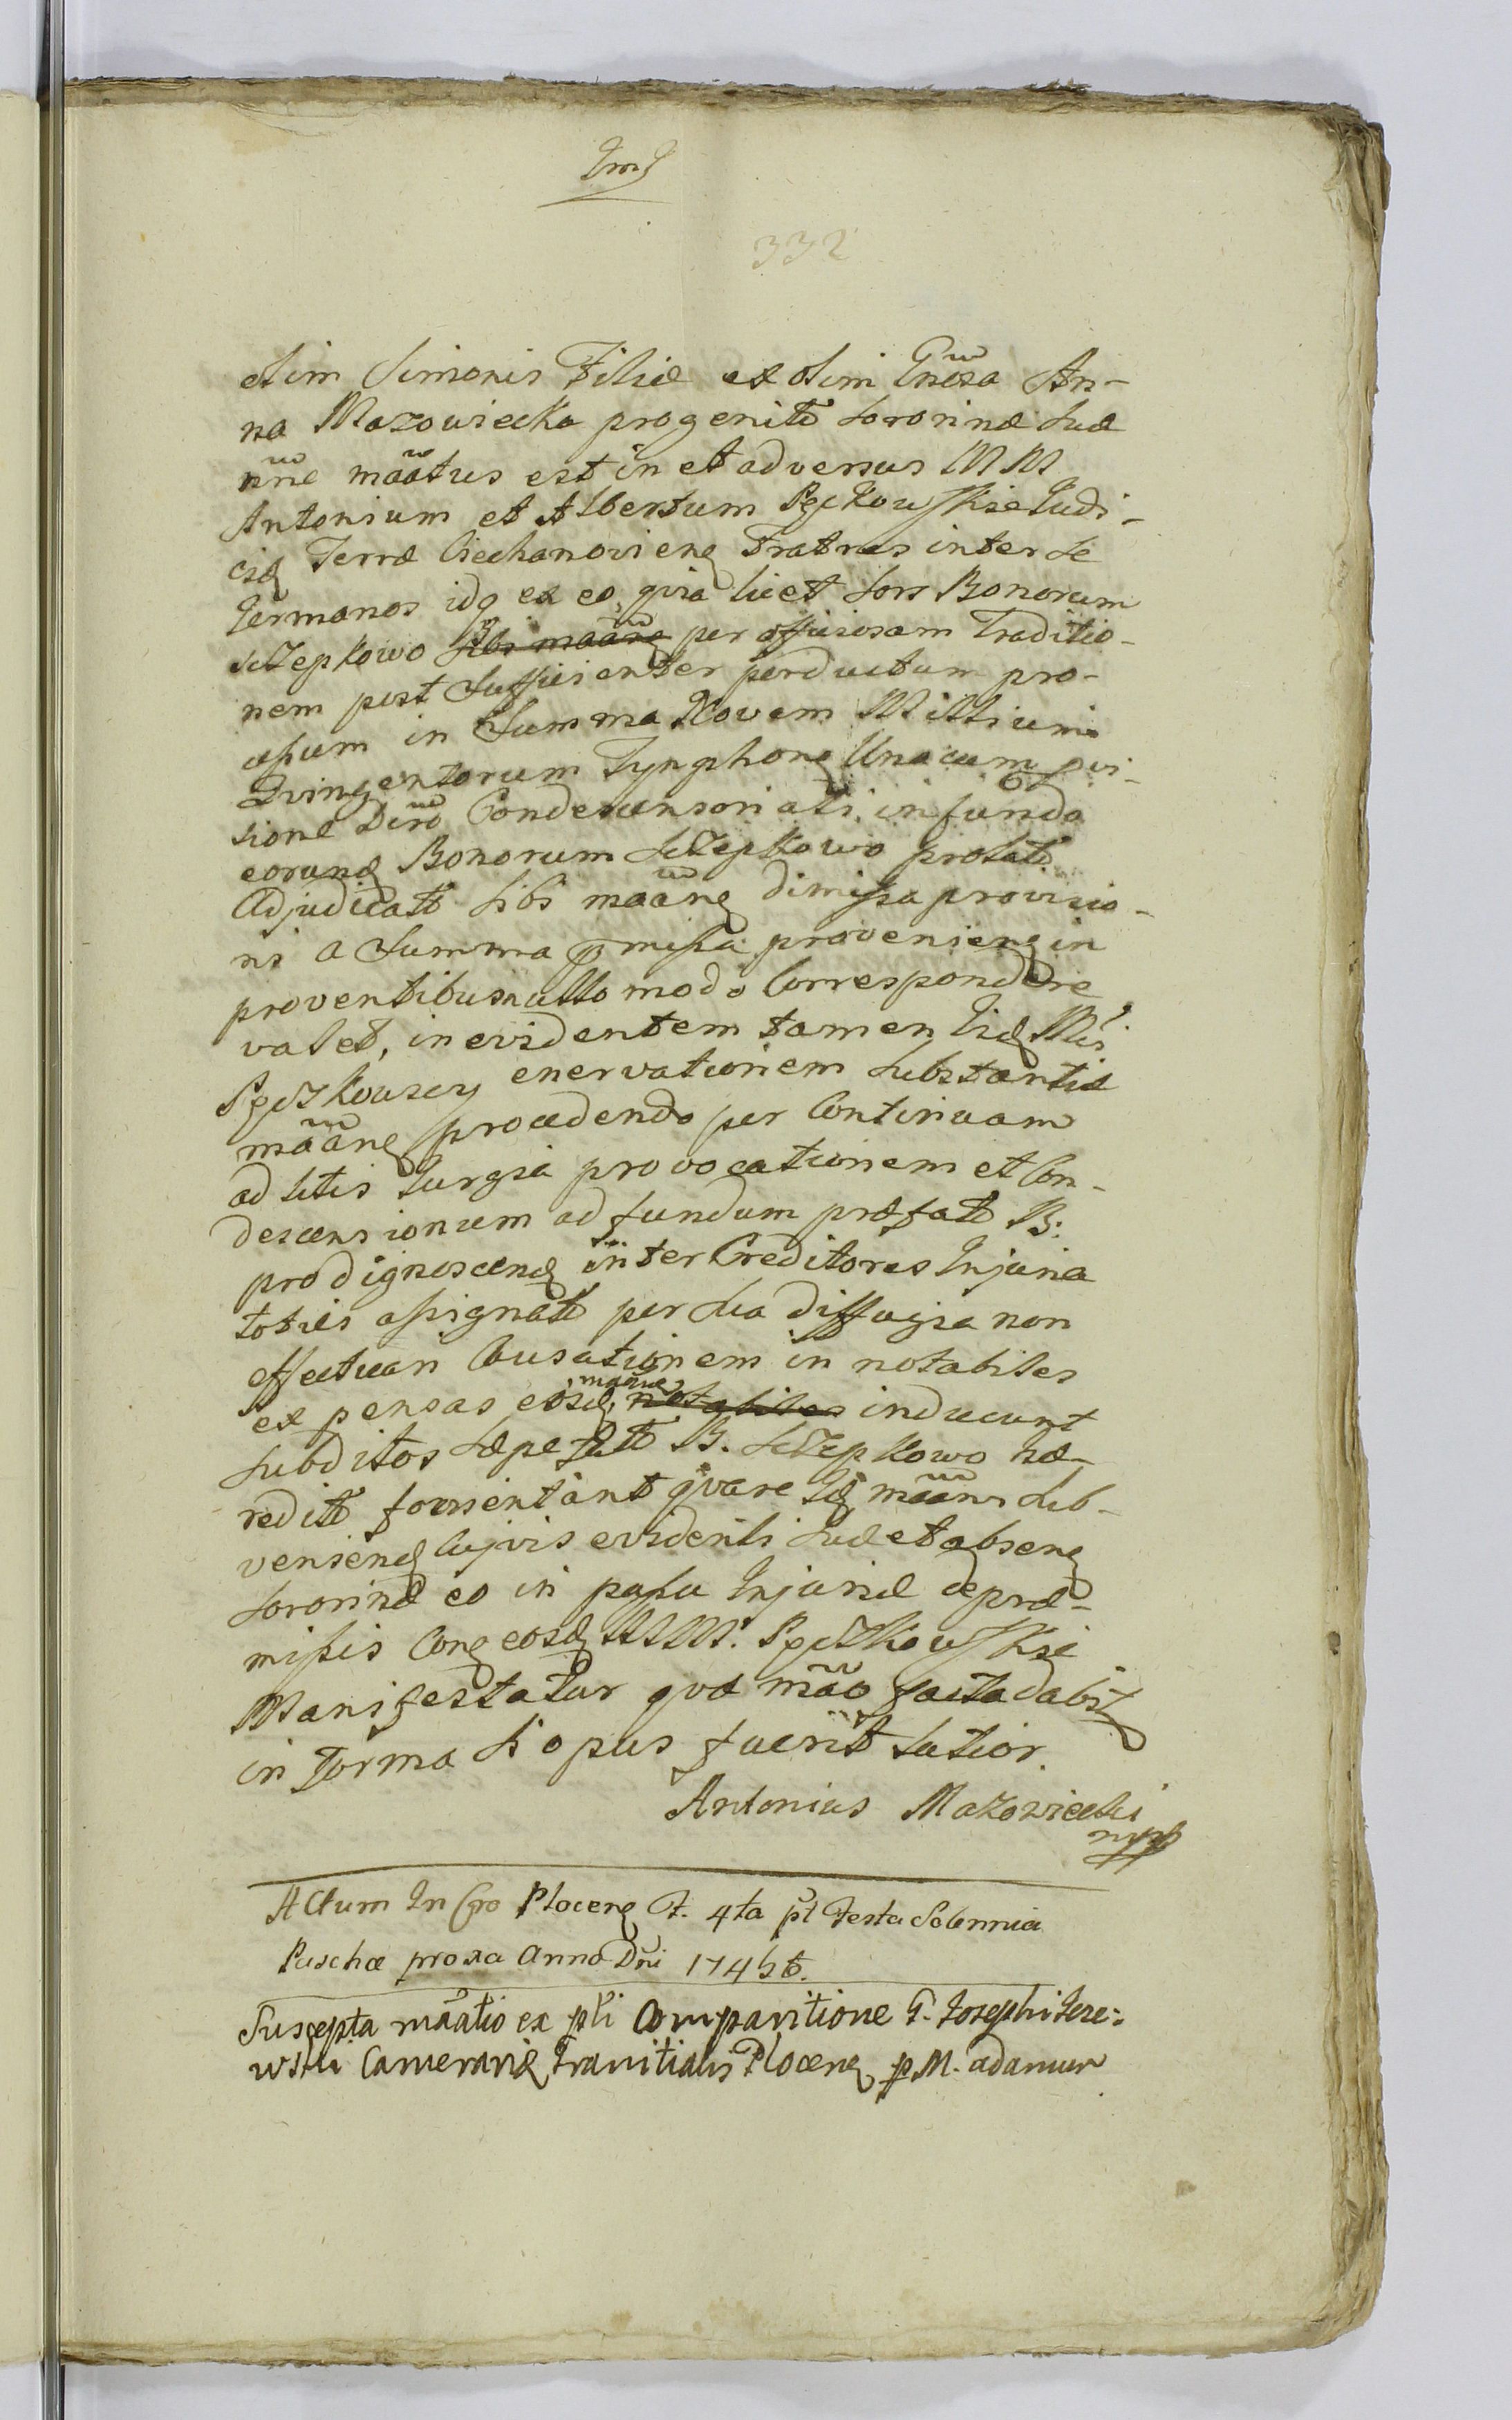 332
olim Simonis Filiæ ex olim Gnosa An-
na Mazowiecka progenito Sororinæ Suæ
nne maatus est in et adversus MM
Antonium et Albertum Judi-
Terræ Ciechanovien Fratres inter Se
Germanos idq ex eo, qvia licet Sors Bonorum
Szczepkowo Sibi maan per officiosam Traditio-
nem post Sufficienter perductum pro-
cessum in Summa Novem Millium
Qvingentorum Tymphon Unacum pvi-
sione Condescensoriali in fundo
eorund Bonorum Szczepkowo prolato
Adjudicato Sibi maan dimissa provisio-
ni a Summa pmissa provenien in
proventibus nullo modo Correspondere
valet, in evidentem tamen Iid
enervationem Substantiæ
maan procedendo per Continuam
ad litis Jurgia provocationem et Con-
descensionum ad fundum præfato B:
pro dignoscend inter Creditores Injuria
toties assignato per Sua diffugia non
effectuan Causationem in notabiles
expensas eosd maan notabiles inducunt
Subditos Sæpefato B. Szczepkowo hæ-
redito qvare Id maans Sub-
veniend Cujvis evidenti Suæ et absen
Sororinæ eo in passu Injuriæ de præ-
missis Con eosd MM.
Manifestatur qvæ mão facta dabit
in Forma Si opus fuerit latior.
Antonius Mazowiecki
mpp
Actum In Cro Plocen F. 4ta pt Festa Solennia
Paschæ proxa Anno Dni
Suscepta maatio ex pli Comparitione G. Josephi
Camerarii Granitialis Plocen p M. adamum